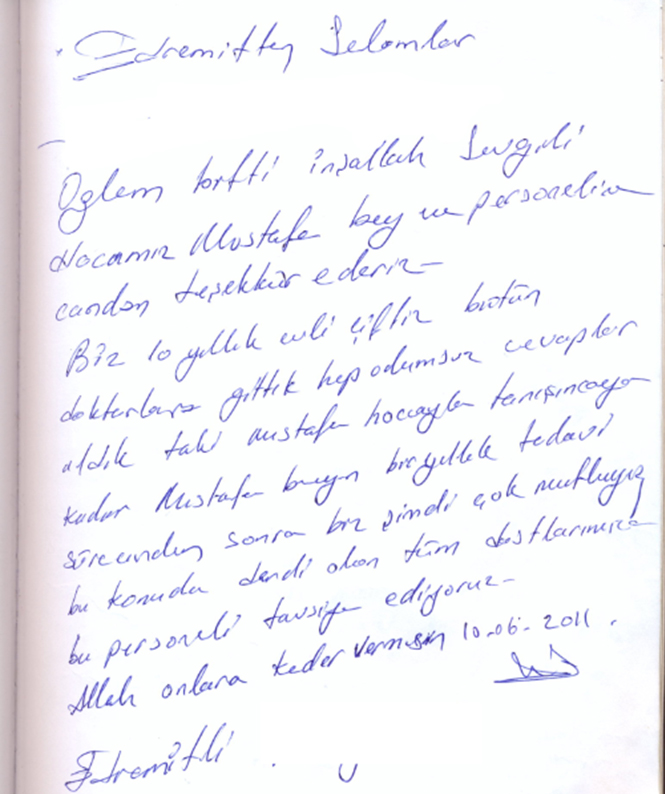 Edremitten Selamlar
Özlem bitti inşallah Sevgili
Hocamız Mustafa bey ve personeline
candan teşekkür ederiz-
Biz 10 yıllık evli çiftiz bütün
doktorlara gittik hep odumsuz cevaplar
aldık taki Mustafa hocayla tanışıncaya
kadar Mustafa beyin bir yıllık tedavi
sürecinden sonra biz şimdi çok mutluyuz
bu konuda derdi olan tüm dostlarımıza
bu personeli tavsiye ediyoruz-
Allah onlara keder vermesin 10-06-2011.
Edremitli